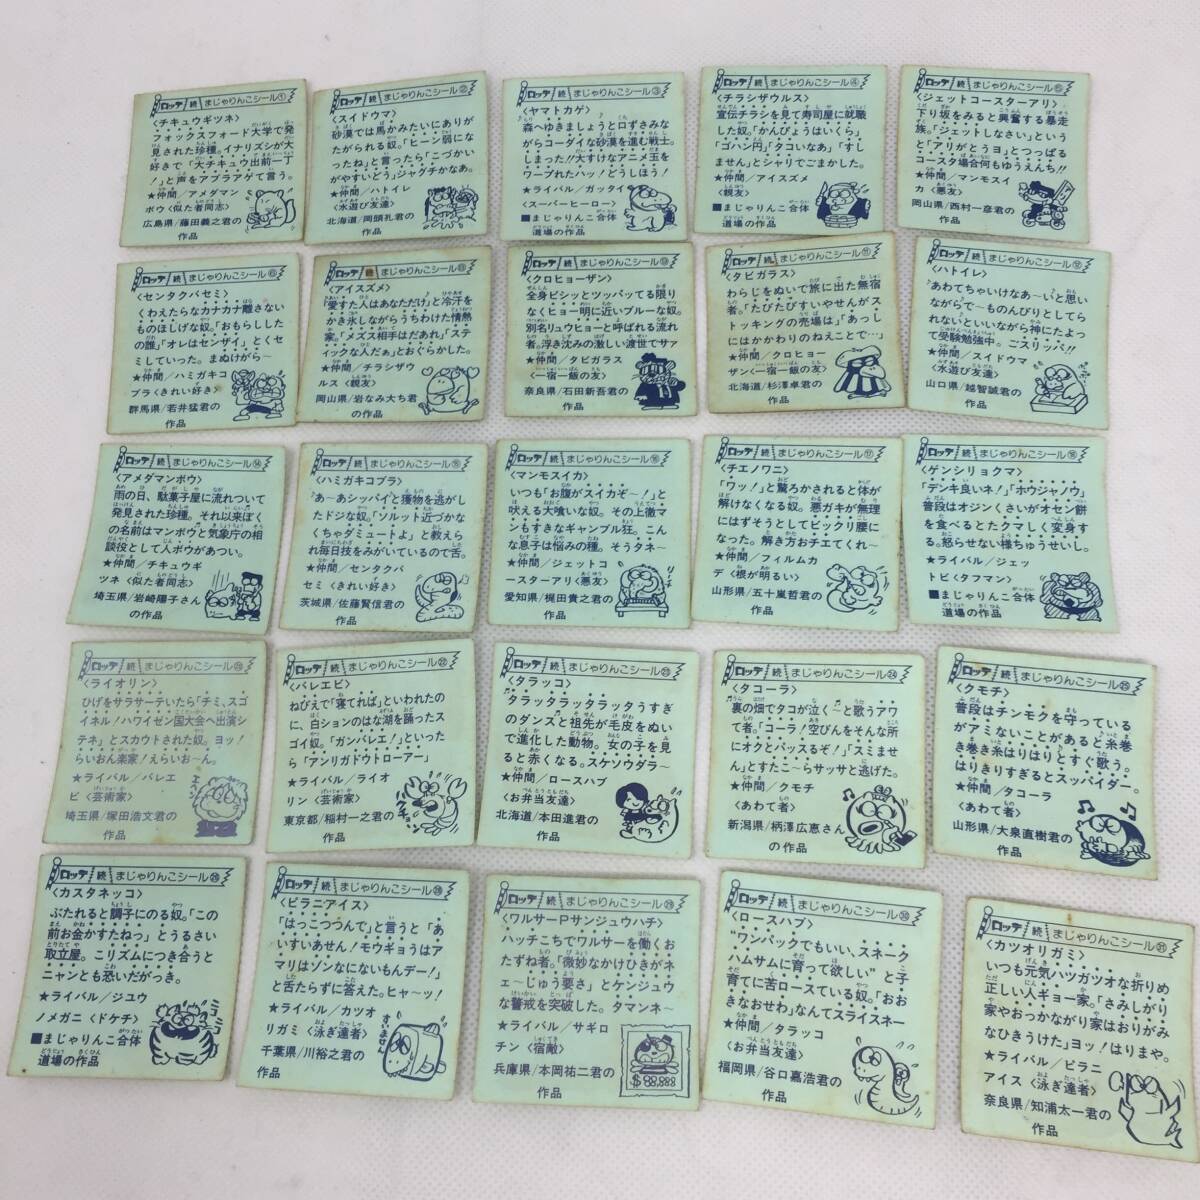 ロッテ 続 まじゃりんこシール①
〈チキュウギツネ〉
フォックスフォード大学で発
見された珍種。イナリズシが大
好きで「大チキュウ出前一丁
！」と声をアブラアゲて言う。
★仲間／アメダマン
ボウ〈似た者同志〉
広島県／藤田義之君の
作品
ロッテ 続 まじゃりんこシール②
〈スイドウマ〉
砂漠では馬かみたいにありが
たがられる奴。「ヒーン弱にな
ったね」と言ったら「こづかい
がやすいどう」ジャグチかなあ。
★仲間／ハトイレ
〈水遊び友達〉
北海道／岡頭礼君の
作品
ロッテ 続 まじゃりんこシール③
〈ヤマトカゲ〉
♪森へゆきましょうと口ずさみな
がらコーダイな砂漠を進む戦士。
しまった!!大すけなアニメ玉を
ワープれたハッ！どうしほう！
★ライバル／ガッタイ
〈スーパーヒーロー〉
■まじゃりんこ合体
道場の作品
ロッテ 続 まじゃりんこシール④
〈チラシザウルス〉
宣伝チラシを見て寿司屋に就職
した奴。「かんぴょうはいくら」
「ゴハン円」「タコいなあ」「すし
ません」とシャリでごまかした。
★仲間／アイスズメ
〈親友〉
■まじゃりんこ合体
道場の作品
ロッテ 続 まじゃりんこシール⑤
〈ジェットコースターアリ〉
下り坂をみると興奮する暴走
族。「ジェットしなさい」という
と「アリがとうヨ」とつっぱる
コースタ場合何もゆうえんち!!
★仲間／マンモスイ
カ〈悪友〉
岡山県／西村一彦君の
作品
ロッテ 続 まじゃりんこシール⑥
〈センタクバセミ〉
くわえたらなカナカナ離さない
ものほしげな奴。「おもらしした
の誰」「オレはセンザイ」とくせ
ミしていった。まぬけがら〜
★仲間／ハミガキコ
ブラ〈きれい好き〉
群馬県／若井猛君の
作品
ロッテ 続 まじゃりんこシール
〈アイスズメ〉
「愛すた人はあなただけ」と冷汗を
かき氷しながらうちわけた情熱
家。「メズス相手はだあれ」「ステ
ィックな人だぁ」とおぐらかした。
★仲間／チラシザウ
ルス〈親友〉
岡山県／岩なみ大ち君
の作品
ロッテ 続 まじゃりんこシール
〈クロヒョーザン〉
全身ビシッとツッパッてる限り
なくヒョー明に近いブルーな奴。
別名リュウヒョーと呼ばれる流れ
者。浮き沈みの激しい渡世でサァ
★仲間／タビガラス
〈一宿一飯の友〉
奈良県／石田新吾君の
作品
ロッテ 続 まじゃりんこシール⑪
〈タビガラス〉
わらじをぬいで旅に出た無宿
者。「たびたびすいやせんがス
トッキングの売場は」「あっし
にはかかわりのねぇことで…」
★仲間／クロヒョー
ザン〈一宿一飯の友〉
北海道／杉澤卓君の
作品
ロッテ 続 まじゃりんこシール⑫
〈ハトイレ〉
「あわてちゃいけなあ〜い」と思い
ながらで〜ものんびりとしてら
れないといいながら神にたよっ
て受験勉強中。ごスリッパ!!
★仲間／スイドウマ
〈水遊び友達〉
山口県／越智誠君の
作品
ロッテ 続 まじゃりんこシール⑭
〈アメダマンボウ〉
雨の日、駄菓子屋に流れついて
発見された珍種。それ以来ぼく
の名前はマンボウと気象庁の相
談役として人ボウがあつい。
★仲間／チキュウギ
ツネ〈似た者同志〉
埼玉県／岩崎陽子さん
の作品
ロッテ 続 まじゃりんこシール⑮
〈ハミガキコブラ〉
「あ〜あシッパイ」と獲物を逃がし
たドジな奴。「ソルット近づかな
くちゃダミュートよ」と教えら
れ毎日技をみがいているので舌。
★仲間／センタクバ
セミ〈きれい好き〉
茨城県／佐藤賢信君の
作品
ロッテ 続 まじゃりんこシール⑯
〈マンモスイカ〉
いつも「お腹がスイカぞ〜！」と
吠える大喰いな奴。その上徹マ
ンもすきなギャンブル狂。こん
な息子は悩みの種。そうタネ〜
★仲間／ジェットコ
ースターアリ〈悪友〉
愛知県／梶田貴之君の
作品
ロッテ 続 まじゃりんこシール⑰
〈チエノワニ〉
「ワッ！」と驚ろかされると体が
解けなくなる奴。悪ガキが無理
にはずそうとしてビックリ腰に
なった。解き方おチエてくれ〜
★仲間／フィルムカ
デ〈根が明るい〉
山形県／五十嵐哲君の
作品
ロッテ 続 まじゃりんこシール⑱
〈ゲンシリョクマ〉
「デンキ良いネ！」「ホウジャノウ」
普段はオジンくさいがオセン餅
を食べるとたクマしく変身す
る。怒らせない様ちゅうせいし。
★ライバル／ジェッ
トビ〈タフマン〉
■まじゃりんこ合体
道場の作品
ロッテ 続 まじゃりんこシール
〈ライオリン〉
ひげをサラサーテいたら「チミ、スゴ
イネル！ハワイゼン国大会へ出演シ
テネ」とスカウトされた奴。ヨッ！
らいおん楽家！えらいお〜ん。
★ライバル／バレエ
ビ〈芸術家〉
埼玉県／塚田浩文君の
作品
ロッテ 続 まじゃりんこシール㉒
〈バレエビ〉
ねびえで「寝てれば」といわれたの
に、白ションのはな湖を踊ったス
ゴイ奴。「ガンバレエ！」といった
ら「アンリガドウトローアー」
★ライバル／ライオ
リン〈芸術家〉
東京都／稲村一之君の
作品
クチョン
ロッテ 続 まじゃりんこシール㉓
〈タラッコ〉
♪タラッタラッタラッタうすぎ
のダンスと祖先が毛皮をぬい
で進化した動物。女の子を見
ると赤くなる。スケソウダラ〜
★仲間／ロースハブ
〈お弁当友達〉
北海道／本田進君の
作品
ロッテ 続 まじゃりんこシール㉔
〈タコーラ〉
♪裏の畑でタコが泣く〜と歌うアワ
て者。「コーラ！空びんをそんな所
にオクとパッスるぞ！」「スミませ
ん」とすたこ〜らサッサと逃げた。
★仲間／クモチ
〈あわて者〉
新潟県／柄澤広恵さん
の作品
ロッテ 続 まじゃりんこシール㉕
〈クモチ〉
普段はチンモクを守っている
がアミないことがあると♪糸巻
き巻き糸はりはりとすぐ歌う。
はりきりすぎるとスッパイダー。
★仲間／タコーラ
〈あわて者〉
山形県／大泉直樹君の
作品
ロッテ 続 まじゃりんこシール㉖
〈カスタネッコ〉
ぶたれると調子にのる奴。「この
前お金かすたねっ」とうるさい
取立屋。こリズムにつき合うと
ニャンとも恐いだがっき。
★ライバル／ジュウ
ノメガニ〈ドケチ〉
■まじゃりんこ合体
道場の作品
ニコニコ
ロッテ 続 まじゃりんこシール㉘
〈ピラニアイス〉
「はっこつづんで」と言うと「あ
いすいあせん！モウギョうはア
マリはゾンなにないもんデー！」
と舌たらずに答えた。ヒャ〜ッ！
★ライバル／カツオ
リガミ〈泳ぎ達者〉
千葉県／川裕之君の
作品
すいません
ロッテ 続 まじゃりんこシール㉙
〈ワルサーPサンジュウハチ〉
ハッチこちでワルサーを働くお
たずね者。「微妙なかけひきがネ
ェ〜じゅう要さ」とケンジュウ
な警戒を突破した。タマンネ〜
★ライバル／サギロ
チン〈宿敵〉
兵庫県／本岡祐二君の
作品
ロッテ 続 まじゃりんこシール㉚
〈ロースハブ〉
“ワンパックでもいい、スネーク
ハムサムに育って欲しい”と子
育てに苦ロースている奴。「おお
きなおせわ」なんてスライスネー
★仲間／タラッコ
〈お弁当友達〉
福岡県／谷口嘉浩君の
作品
ロッテ 続 まじゃりんこシール㉛
〈カツオリガミ〉
いつも元気ハツガツオな折りめ
正しい人ギョー家。「さみしがり
家やおっかながり家はおりがみ
なひきうけた」ヨッ！はりまや。
★ライバル／ピラニ
アイス〈泳ぎ達者〉
奈良県／知浦太一君の
作品